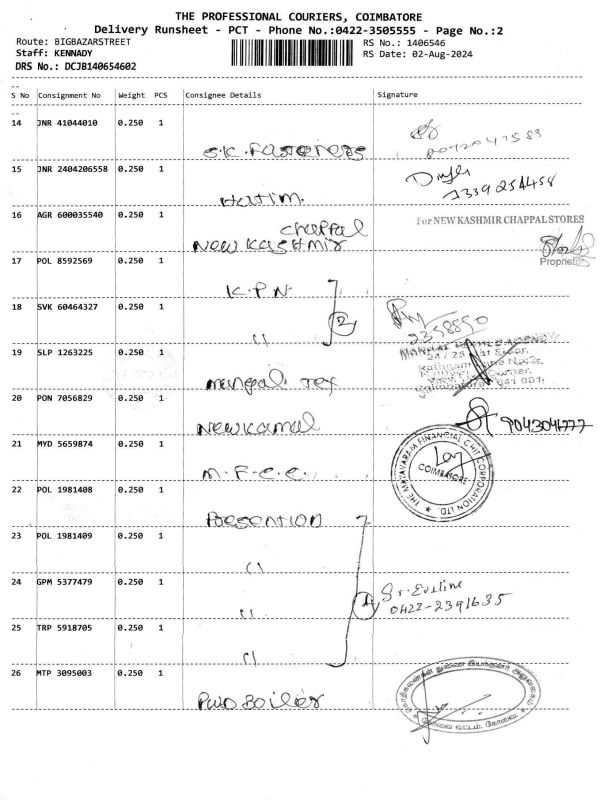 THE PROFESSIONAL COURIERS, COIMBATORE
Delivery Runsheet - PCT - Phone No.:0422-3505555 - Page No.:2
Route: BIGBAZARSTREET
RS No.: 1406546
Staff: KENNADY
RS Date: 02-Aug-2024
DRS No.: DCJB140654602
S No Consignment No Weight PCS Consignee Details Signature
14 JNR 41044010 0.250 1
S.K. Fasteners
15 JNR 2404206558 0.250 1
Hatim.
16 AGR 600035540 0.250 1
chappal
New Kashmir
For NEW KASHMIR CHAPPAL STORES
Proprietor
17 POL 8592569 0.250 1
K.P.N
18 SVK 60464327 0.250 1
2
2358850
19 SLP 1263225 0.250 1
mangal. Tex
20 PON 7056829 0.250 1
New Kamal
9043041777
21 MYD 5659874 0.250 1
M.F.C.C.
THE MAYAVARAM FINANCIAL CHIT CORPORATION LTD.
COIMBATORE
22 POL 1981408 0.250 1
Presention
23 POL 1981409 0.250 1
24 GPM 5377479 0.250 1
4
Sr. Eveline
0422-2391635
25 TRP 5918705 0.250 1
26 MTP 3095003 0.250 1
PWD Boiler